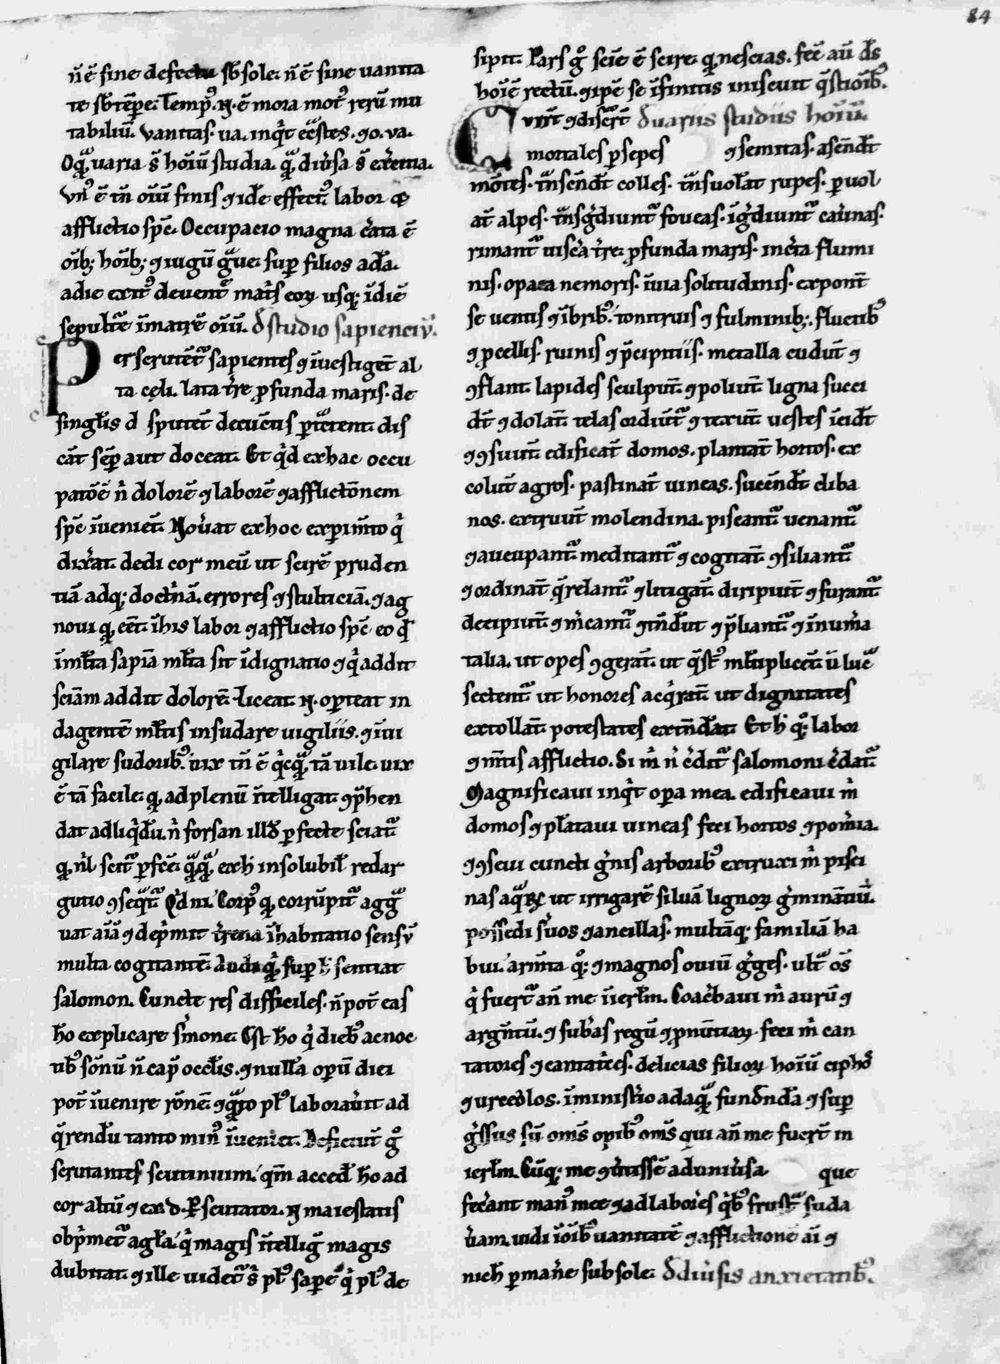 84
ñ ē sine defectu sb̄ sole. ñ ē sine uanita
te sb̄ tēpꝰe. Temꝑꝰ. N. ē mora motꝰ rerū mu
tabiliū. Vanitas. ua. inqͥt eccĺtes. ⁊ o. ua.
O qͣ uaria s̄ hoīū studia. qͣ diuˀsa s̄ exˀcitia.
Vnꝰ ē tn̄ oīū finis ⁊ idē effectꝰ labor ⁊
afflictio spc̄. Occupacio magna cˀata ē
oīb; hoīb; ⁊ iugū gͣue. suꝑ filios adā.
a die exitꝰ de uentˀ matˀs eoꝝ usq; ī diē
sepultˀe ī matrē oīū. De studio sapienciū.
Perscrutētͬ sapientes ⁊ īuestigēt al
ta celi. lata tˀre ꝓfunda maris. de
singlˀis disputēt de cūctis pˀtractent. dis
cāt sēꝑ aut doceat. Et qͥd ex hac occu
patōē nͥ dolorē ⁊ laborē ⁊ afflictōnem
spc̄ īueniet. Nouˀat ex hoc exꝑimˀto qͥ
dixˀat. dedi cor meū ut scirē pruden
tiā adq; doctͥnā. errores ⁊ stulticiā. ⁊ ag
noui ꝙ eēt ī his labor ⁊ afflictio spc̄. eo ꝙ
ī mlˀta sapiā mlˀta sit īdignatio ⁊ qͥ addit
sciām addit dolorē. Liceat. N. oꝑteat in
dagantē mlˀtis insudare uigiliis. ⁊ īui
gilare sudoribꝰ. uix tn̄ ē qͥcqͣ tā uile. uix
ē tā facile. ꝙ ad plenū ītelligat ⁊ pˀhen
dat ad liqͥdū. nͥ forsan illd̄ ꝑfecte sciatͬ
ꝙ nͥl scitͬ ꝑfcē. qͣqͣ ex h̄ insolubil̄ redar
gutio ⁊seqͣtͬ. Qͥdni. Corpꝰ ꝙ corrūpitͬ aggͣ
uat aīā ⁊ depˀmit tˀrena īhabitatio sensū
multa cogitantē. Audi qͥ suꝑ h̄ sentiat
salomon. Cuncte res difficiles. n̄ potˀ eas
ho explicare sˀmone. Est ho qͥ diebꝰ ac noc
tibꝰ sōnū n̄ capˀ occlˀis. ⁊ nullā oꝑū dei
potˀ īuenire rōnē. ⁊ qͣto plꝰ laborauˀit ad
qͣrendū tanto minꝰ īueniet. Deficiūt gͦ
scrutantes scrutinium. qm̄ acced̄ ho ad
cor altū ⁊ exˀ d̄. Ꝑscrutator. N. maiestatis
opprimetͬ a glˀa. qͥ magis ītelligˀ magis
dubitat. ⁊ ille uidetͬ s̄ plꝰ saꝑe qͥ plꝰ de
sipit. Pars gͦ scīe ē scire ꝙ nescias. fecˀ aū dˀs
hoīē rectū. ⁊ ipē se īfinitis iniscuit qͣstiōībꝰ.
Currūt ⁊ discurrūt De uariis studiis hoīū.
mortales ꝑ sepes ⁊ semitas. ascēdūt
mōtes. tͬnscēdūt colles. tͬnsuolāt rupes. ꝑuol
ant alpes. tͬnsgˀdiuntͬ foueas. īgˀdiuntͬ cauˀnas.
rimantͬ uiscˀa tˀre. ꝓfunda maris. incˀta flumi
nis. opaca nemoris. īuia solitudinis. exponūt
se uentis ⁊ ībribꝰ. tonitruis ⁊ fulminib;. fluctibꝰ
⁊ ꝓcellis. ruinis ⁊ pˀcipitiis. metalla cudūt ⁊
⁊flant. lapides sculpūt ⁊ poliunt. ligna succi
dūt ⁊ dolant. telas ordiūtͬ ⁊ texunt. uestes īcidūt
⁊ ⁊suunt. edificāt domos. plantāt hortos. ex
colūt agros. pastināt uineas. succēdūt cliba
nos. extruūt molendina. piscantͬ uenantͬ
⁊ aucupantͬ. meditantͬ ⁊ cogitāt. ⁊siliantͬ
⁊ ordināt. qͣrelantͬ ⁊ litigāt. diripiūt ⁊ furantͬ
decipiunt ⁊ mˀcantͬ. ⁊tēdūt ⁊ pˀliantͬ ⁊ inumˀa
talia. ut opes ⁊gerāt. ut qͣstꝰ mlˀtiplicent. ut lucˀ
sectentͬ. ut honores acqͥrāt. ut dignitates
extollāt. potestates extēdāt. Et h̄ qͦ; labor
⁊ mˀtis afflictio. Si m̄ n̄ cˀditͬ salomoni cˀdatͬ
Magnificaui inqͥt oꝑa mea. edificaui m̄
domos ⁊ plātaui uineas. feci hortos ⁊ pomˀia.
⁊ ⁊seui cuncti gˀnis arboribꝰ. extruxi m̄ pisci
nas aqͣꝝ ut irrigarē siluā lignoꝝ gˀminātiū.
possedi sˀuos ⁊ ancillas. multāq; familiā ha
bui. armˀta qͦ; ⁊ magnos ouiū gˀges. ultͬ oēs
qͥ fuerūt an̄ me ī ierlˀm. Coacˀuaui m̄ aurū ⁊
argētū. ⁊ subˀas regū ⁊ ꝓuīciaꝝ. feci m̄ can
tatores ⁊ cantatͥces. delicias filioꝝ hoīū. ciphos
⁊ urceolos. ī ministˀio ad aqͣ fundendā. ⁊ suꝑ
gˀssus sū oms̄ opibꝰ oms̄ qui an̄ me fuerˀt in
ierlˀm. Cūq; me ⁊uˀtissē ad uniuˀsa que
fecˀant manꝰ mee ⁊ ad labores qͥbꝰ frustͬ suda
uˀam. uidi ī oībꝰ uanitatē ⁊ afflictione aī ⁊
nich̄ ꝑmanˀe sub sole. De diuˀsis anxietatibꝰ.